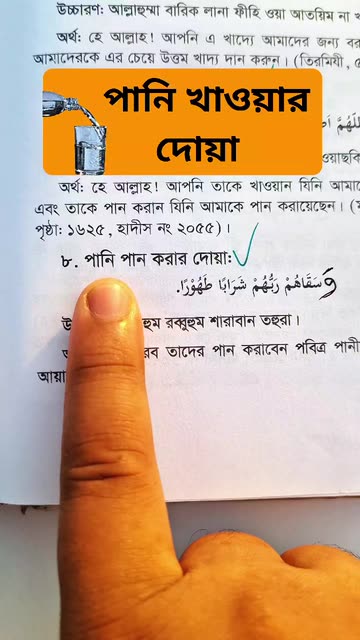 উচ্চারণ: আল্লাহুম্মা বারিক লানা ফীহি ওয়া আতয়িম না
অর্থ: হে আল্লাহ! আপনি এ খাদ্যে আমাদের জন্য
আমাদেরকে এর চেয়ে উত্তম খাদ্য দান করুন। (তিরমিযী,
পানি খাওয়ার
দোয়া
অর্থ: হে আল্লাহ! আপনি তাকে খাওয়ান যিনি
এবং তাকে পান করান যিনি আমাকে পান করায়েছেন।
পৃষ্ঠা: ১৬২৫, হাদীস নং ২০৫৫)।
৮. পানি পান করার দোয়া:
وَسَقَاهُمْ رَبُّهُمْ شَرَابًا طَهُوْرًا.
রব্বুহুম শারাবান তহুরা।
তাদের পান করাবেন পবিত্র পানী